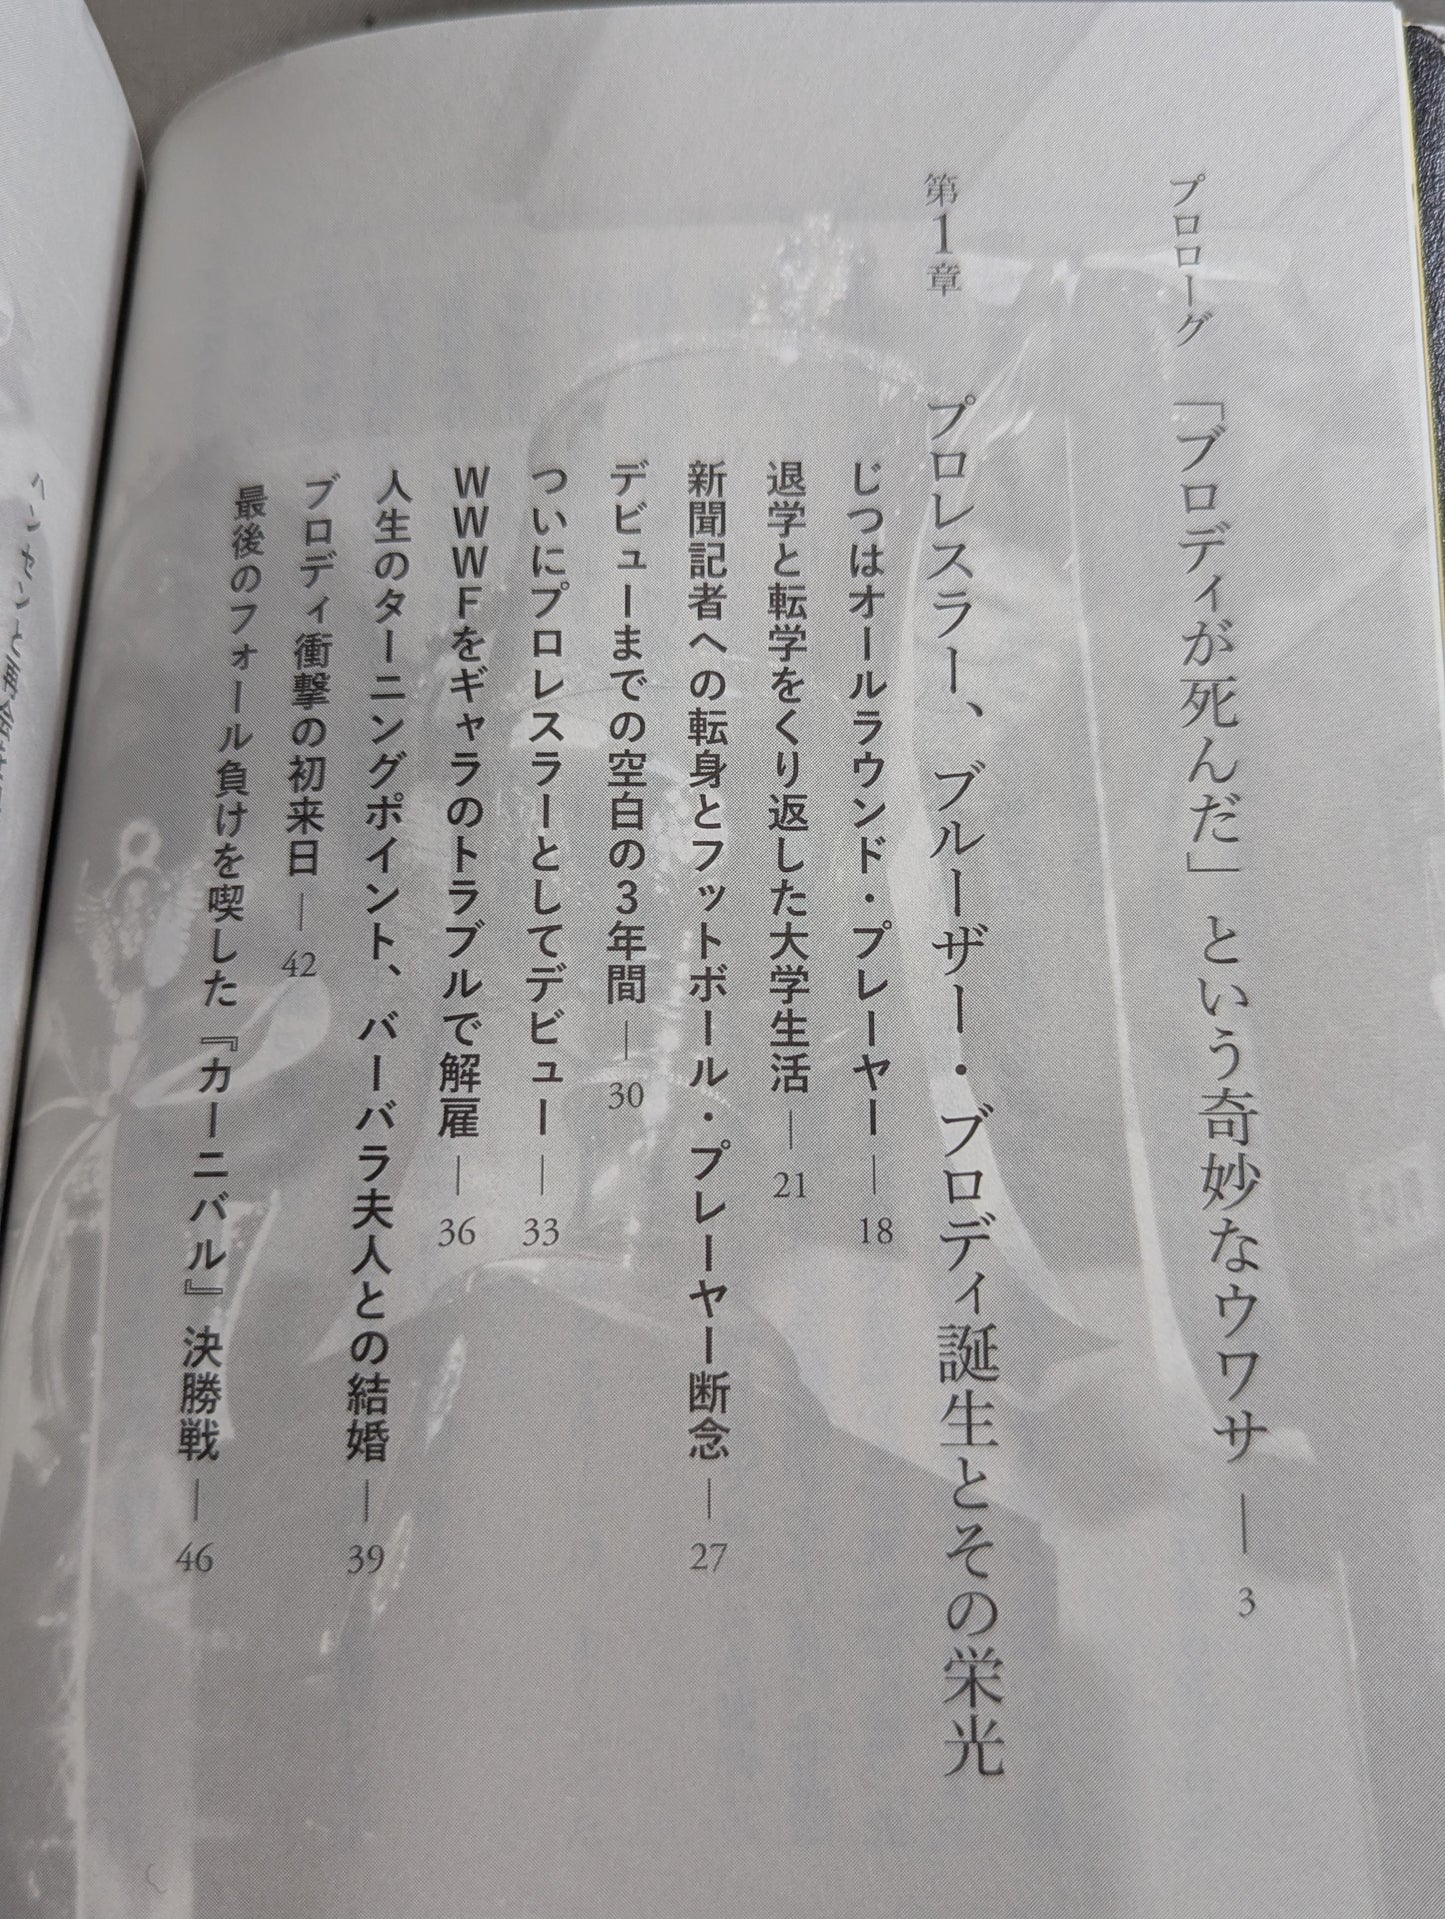 プロローグ 「ブロディが死んだ」という奇妙なウワサ — 3
第1章 プロレスラー、ブルーザー・ブロディ誕生とその栄光
じつはオールラウンド・プレーヤー — 18
退学と転学をくり返した大学生活 — 21
新聞記者への転身とフットボール・プレーヤー断念 — 27
デビューまでの空白の3年間 — 30
ついにプロレスラーとしてデビュー — 33
WWWFをギャラのトラブルで解雇 — 36
人生のターニングポイント、バーバラ夫人との結婚 — 39
ブロディ衝撃の初来日 — 42
最後のフォール負けを喫した『カーニバル』決勝戦 — 46